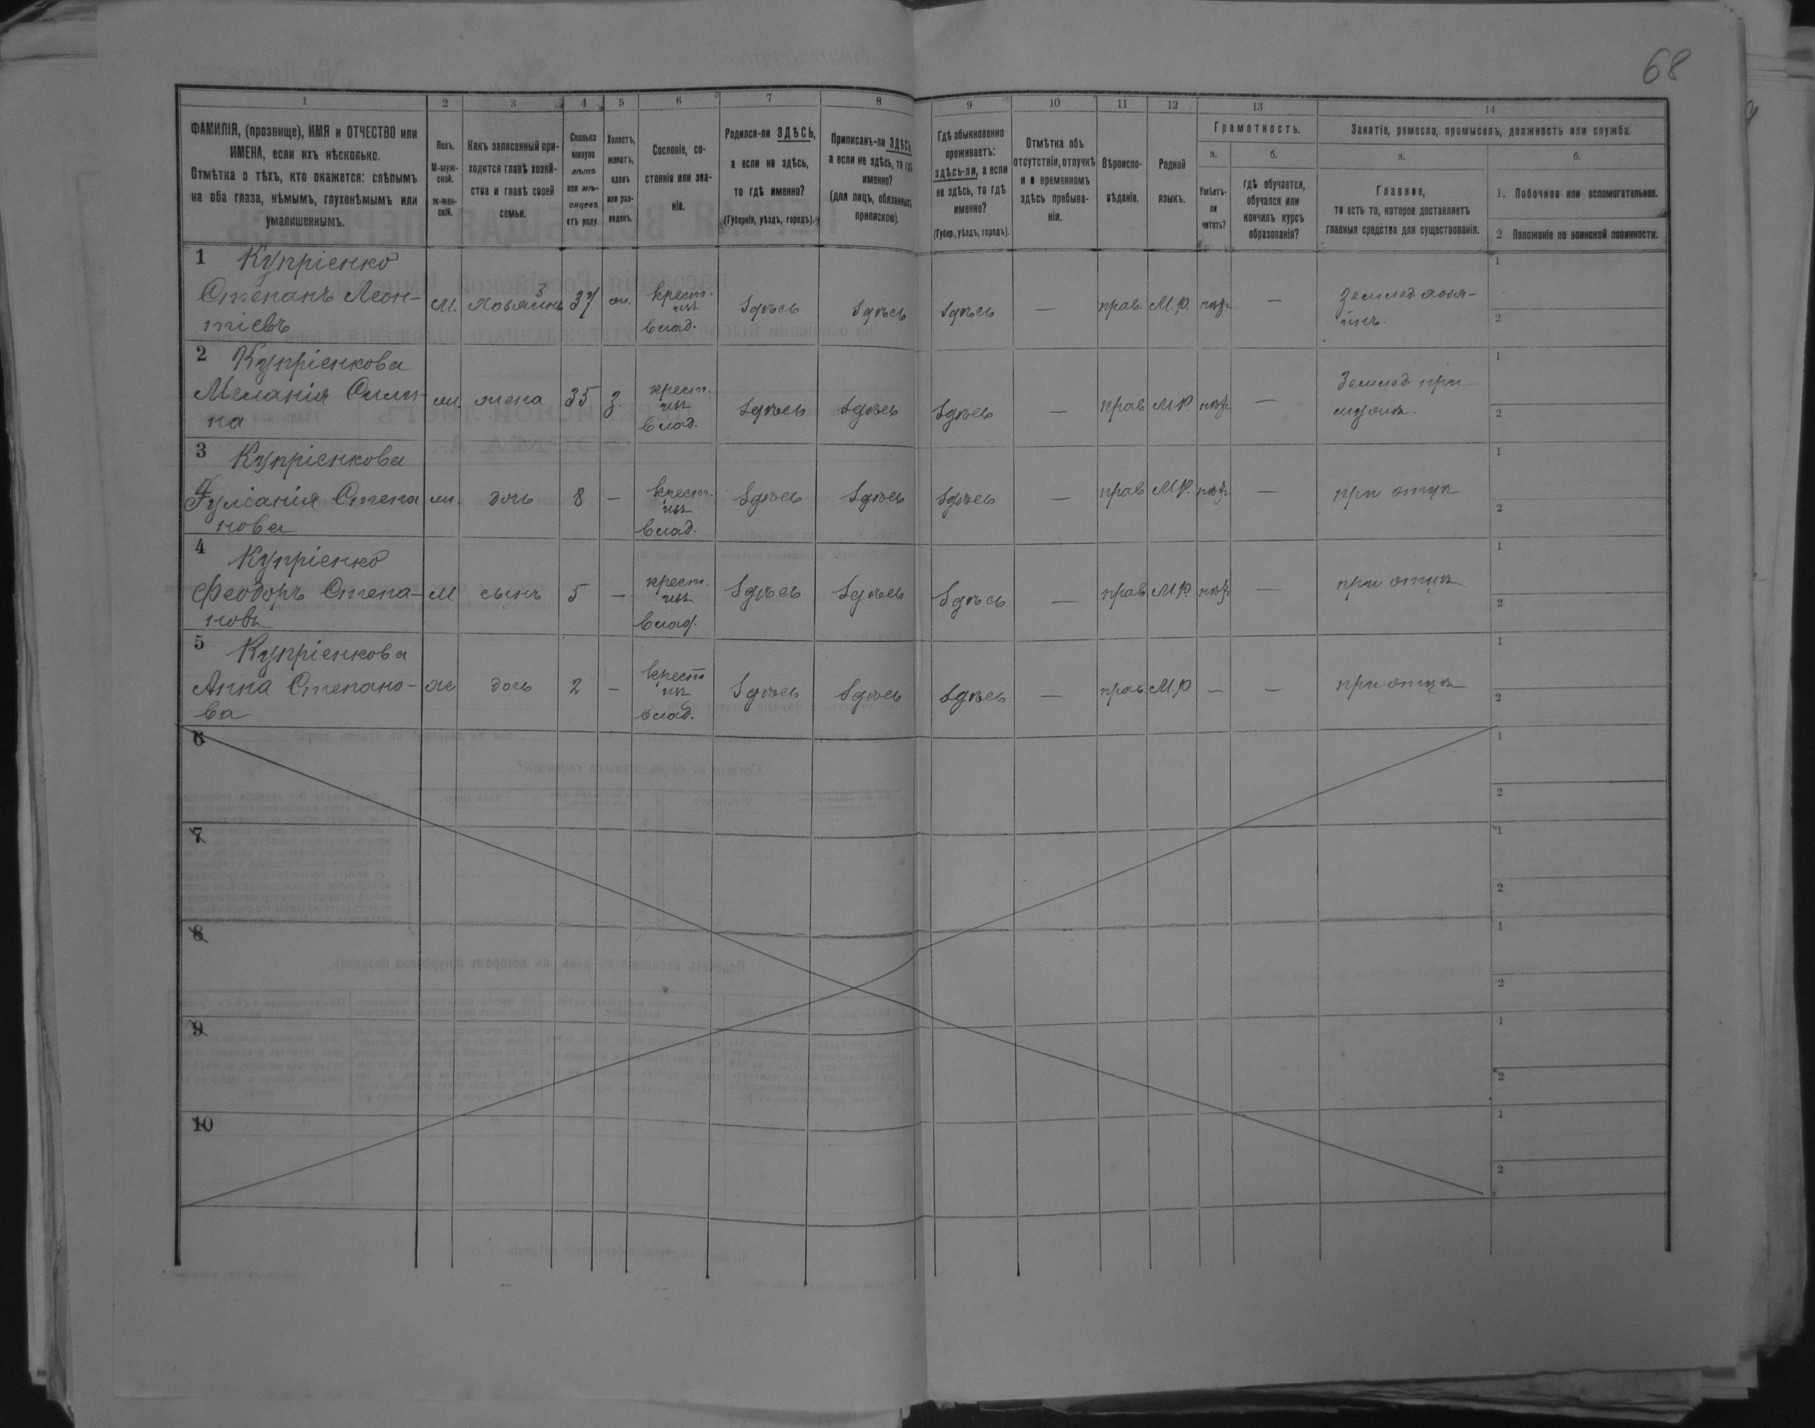 68
1 2 3 4 5 6 7 8 9 10 11 12 13 14
ФАМИЛІЯ, (прозвище), ИМЯ и ОТЧЕСТВО или
ИМЕНА, если ихъ нѣсколько.
Отмѣтка о тѣхъ, кто окажется: слѣпымъ
на оба глаза, нѣмымъ, глухонѣмымъ или
умалишеннымъ.
Полъ.
М-муж-
ской.
ж-жен-
скій.
Какъ записанный при-
ходится главѣ хозяй-
ства и главѣ своей
семьи.
Сколько
минуло
лѣтъ
или мѣ-
сяцевъ
отъ роду.
Холостъ,
женатъ,
вдовъ
или раз-
веденъ.
Сословіе, со-
стояніе или зва-
ніе.
Родился-ли ЗДѢСЬ,
а если не здѣсь,
то гдѣ именно?
(Губернія, уѣздъ, городъ).
Приписанъ-ли ЗДѢСЬ,
а если не здѣсь, то гдѣ
именно?
(для лицъ, обязанныхъ
припискою).
Гдѣ обыкновенно
проживаетъ:
здѣсь-ли, а если
не здѣсь, то гдѣ
именно?
(Губер., уѣздъ, городъ).
Отмѣтка объ
отсутствіи, отлучкѣ
и о временномъ
здѣсь пребыва-
ніи.
Вѣроиспо-
вѣданіе.
Родной
языкъ.
Грамотность.
а.
Умѣетъ-
ли
читать?
б.
гдѣ обучается,
обучался или
кончилъ курсъ
образованія?
Занятіе, ремесло, промыселъ, должность или служба.
а.
Главное,
то есть то, которое доставляетъ
главныя средства для существованія.
б.
1. Побочное или вспомогательное.
2 Положеніе по воинской повинности.
1 Купріенко
Степанъ Леон-
тіевъ
М. хозяинъ 37 крест. изъ влад. Здѣсь Здѣсь Здѣсь — прав. М.Р. — Землед. хозя-
инъ.
1
2
2 Купріенкова
Меланія
на
жена 35 З. крест. изъ влад. Здѣсь Здѣсь Здѣсь — прав М.Р. —
1
2
3 Купріенкова
Степа
нова
дочь 8 — крест. изъ влад. Здѣсь Здѣсь Здѣсь — прав М.Р. — при отцѣ
1
2
4 Купріенко
Феодоръ Степа-
новъ
М сынъ 5 — крест. изъ влад. Здѣсь Здѣсь Здѣсь — прав М.Р. — при отцѣ
1
2
5 Купріенкова
Анна Степано-
ва
ж дочь 2 — крест изъ влад. Здѣсь Здѣсь Здѣсь — прав М.Р — — при отцѣ
1
2
6
1
2
7
1
2
8
1
2
9
1
2
10
1
2